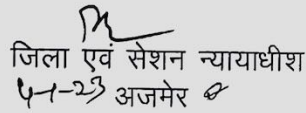 जिला एवं सेशन न्यायाधीश
4-1-23 अजमेर